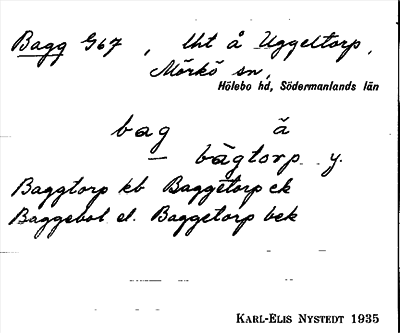 Bagg 967, lht å Uggeltorp,
Mörkö sn,
Hölebo hd, Södermanlands län
bag ă
– bàgtorp y.
Baggtorp kb Baggetorp ek
Baggebol el. Baggetorp bek
KARL-ELIS NYSTEDT 1935